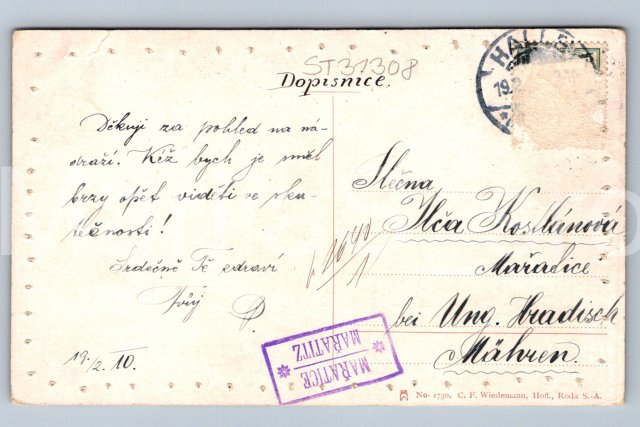 ST31308
Dopisnice.
HALLE
19.2
Děkuji za pohled na ná-
draží. Kéž bych je směl
brzy opět viděti ve sku-
tečnosti!
Srdečně Tě zdraví
Tvůj
19./2. 10.
Slečna
Ilča Kostlánová
Mařatice
bei Ung. Hradisch
Mähren.
MAŘATICE
MAŘATITZ
No. 1730. C. F. Wiedemann, Hofl., Roda S.-A.